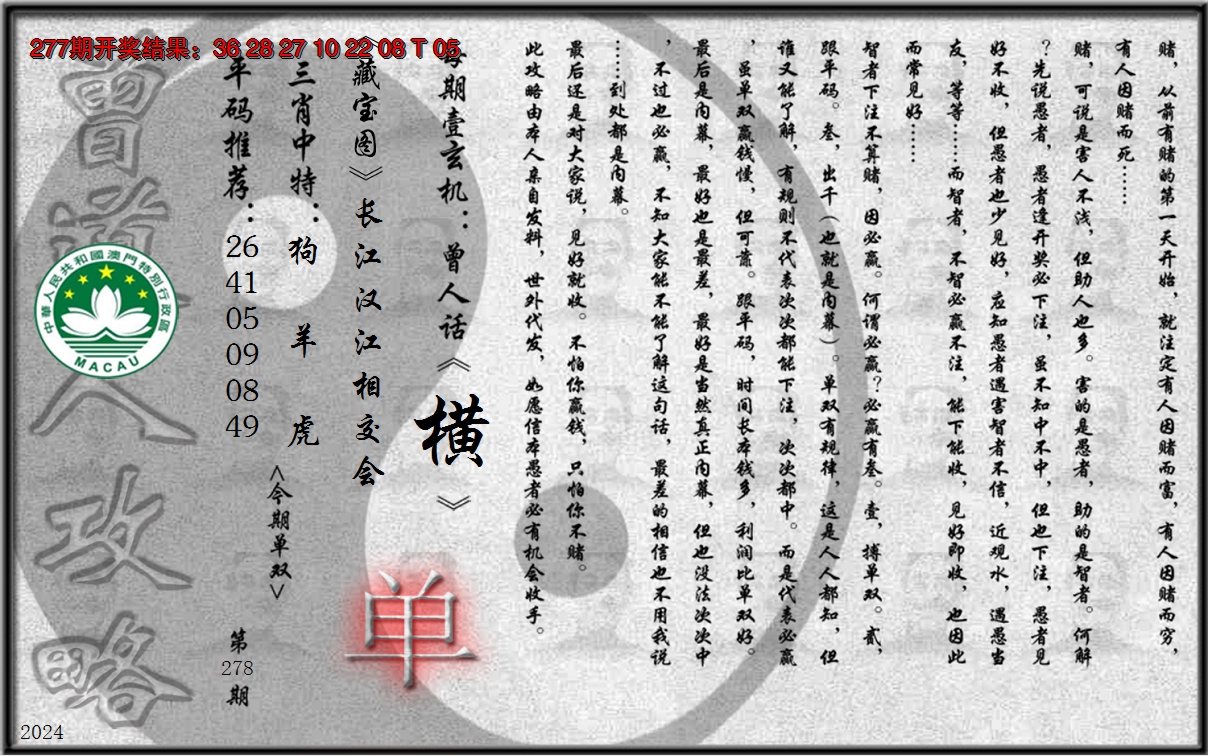 277期开奖结果：36 28 27 10 22 08 T 05
赌，从前有赌的第一天开始，就注定有人因赌而富，有人因赌而穷，
有人因赌而死……
赌，可说是害人不浅，但助人也多。害的是愚者，助的是智者。何解
？先说愚者，愚者逢开奖必下注，虽不知中不中，但也下注，愚者见
好不收，但愚者也少见好，应知愚者遇害智者不信，近观水，遇愚当
友，等等……而智者，不智必赢不注，能下能收，见好即收，也因此
而常见好……
智者下注不算赌，因必赢。何谓必赢？必赢有叁。壹，搏单双。贰，
跟平码。叁，出千（也就是内幕）。单双有规律，这是人人都知，但
谁又能了解，有规则不代表次次都能下注，次次都中。而是代表必赢
，虽单双赢钱慢，但可靠。跟平码，时间长本钱多，利润比单双好。
最后是内幕，最好也是最差，最好是当然真正内幕，但也没法次次中
，不过也必赢，不知大家能不能了解这句话，最差的相信也不用我说
……到处都是内幕。
最后还是对大家说，见好就收。不怕你赢钱，只怕你不赌。
此攻略由本人亲自发料，世外代发，如愿信本愚者必有机会收手。
每期壹玄机：曾人话《横》
《藏宝图》长江汉江相交会
单
三肖中特：狗 羊 虎
<今期单双>
平码推荐：26 41 05 09 08 49
第278期
曾道人攻略
中華人民共和國澳門特別行政區
MACAU
2024